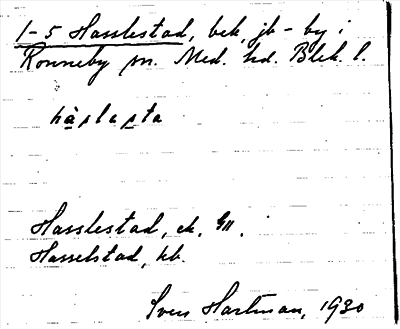 1-5 Hasslestad, bek, jb-by i
Ronneby sn. Med. hd. Blek. l.
hàslasta
Hasslestad, ek. GII.
Hasselstad, kb.
Sven Hartman, 1930